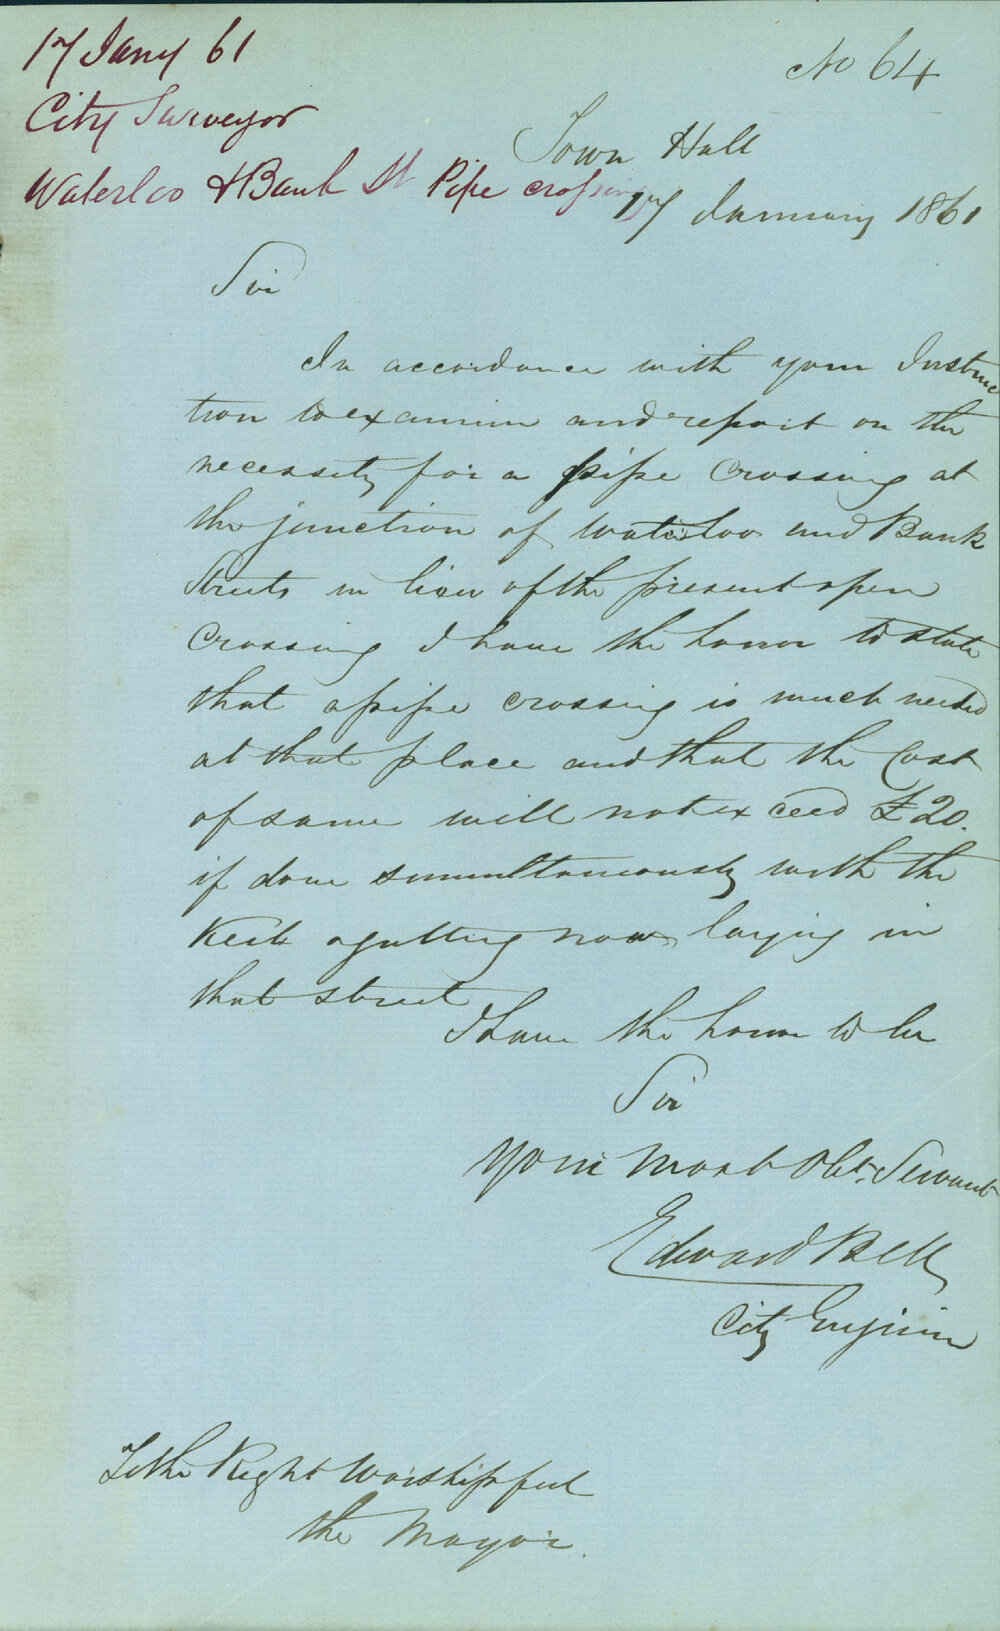 17 Jany 61
No 64
City Surveyor
Town Hall
Waterloo & Bank St Pipe crossing
17 January 1861
Sir
In accordance with your Instruc
tion to examine and report on the
necessity for a pipe crossing at
the junction of Waterloo and Bank
Streets in lieu of the present open
Crossing I have the honor to state
that a pipe crossing is much needed
at that place and that the Cost
of same will not exceed £20.
if done simultaneously with the
Kerb & gutting now laying in
that street
I have the honor to be
Sir
Your Most Obt. Servant
Edward Bell
City Engineer
To the Right Worshipful
the Mayor.